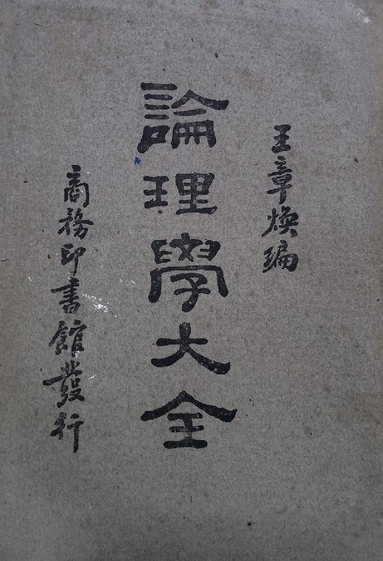 王章焕編
論理學大全
商務印書館發行